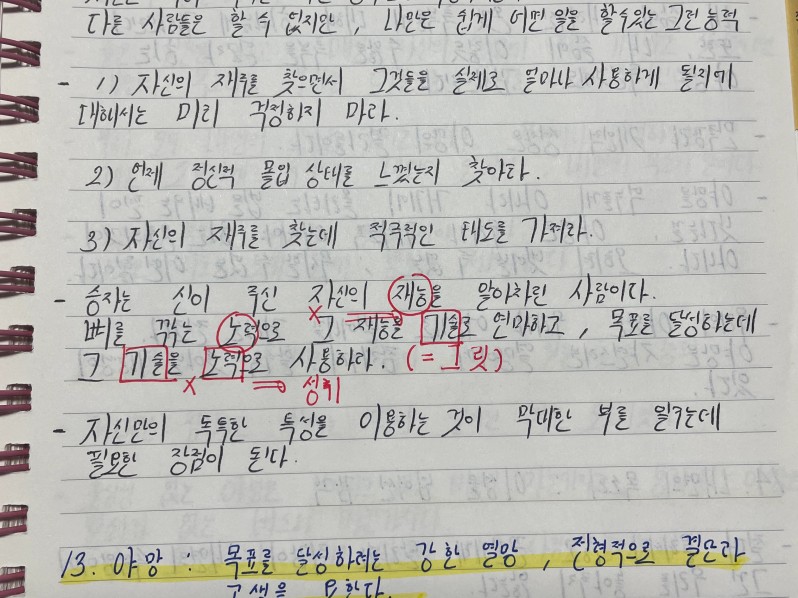 다른 사람들은 할 수 없지만, 나만은 쉽게 어떤 일을 할 수 있는 그런 능력
- 1) 자신의 재주를 찾으면서 그것들을 실제로 얼마나 사용하게 될지에
대해서는 미리 걱정하지 마라.
2) 언제 정신적 몰입 상태를 느꼈는지 찾아라.
3) 자신의 재주를 찾는데 적극적인 태도를 가져라.
- 승자는 신이 주신 자신의 재능을 알아차린 사람이다.
뼈를 깎는 노력으로 × 그 재능을 기술로 연마하고, 목표를 달성하는데
그 기술을 노력으로 사용하라. (= 그릿)
× ⇒ 성취
- 자신만의 독특한 특성을 이용하는 것이 막대한 부를 일구는데
필요한 장점이 된다.
13. 야망 : 목표를 달성하려는 강한 열망, 전형적으로 결단과